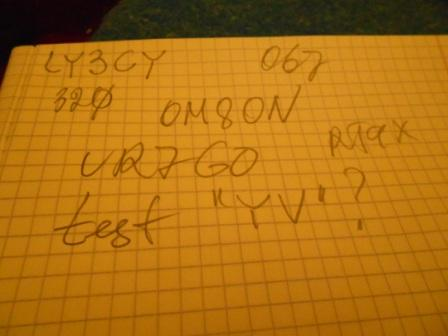 LY3CY 067
320 OM8ON
UR7GO RT9X
test "YV"?